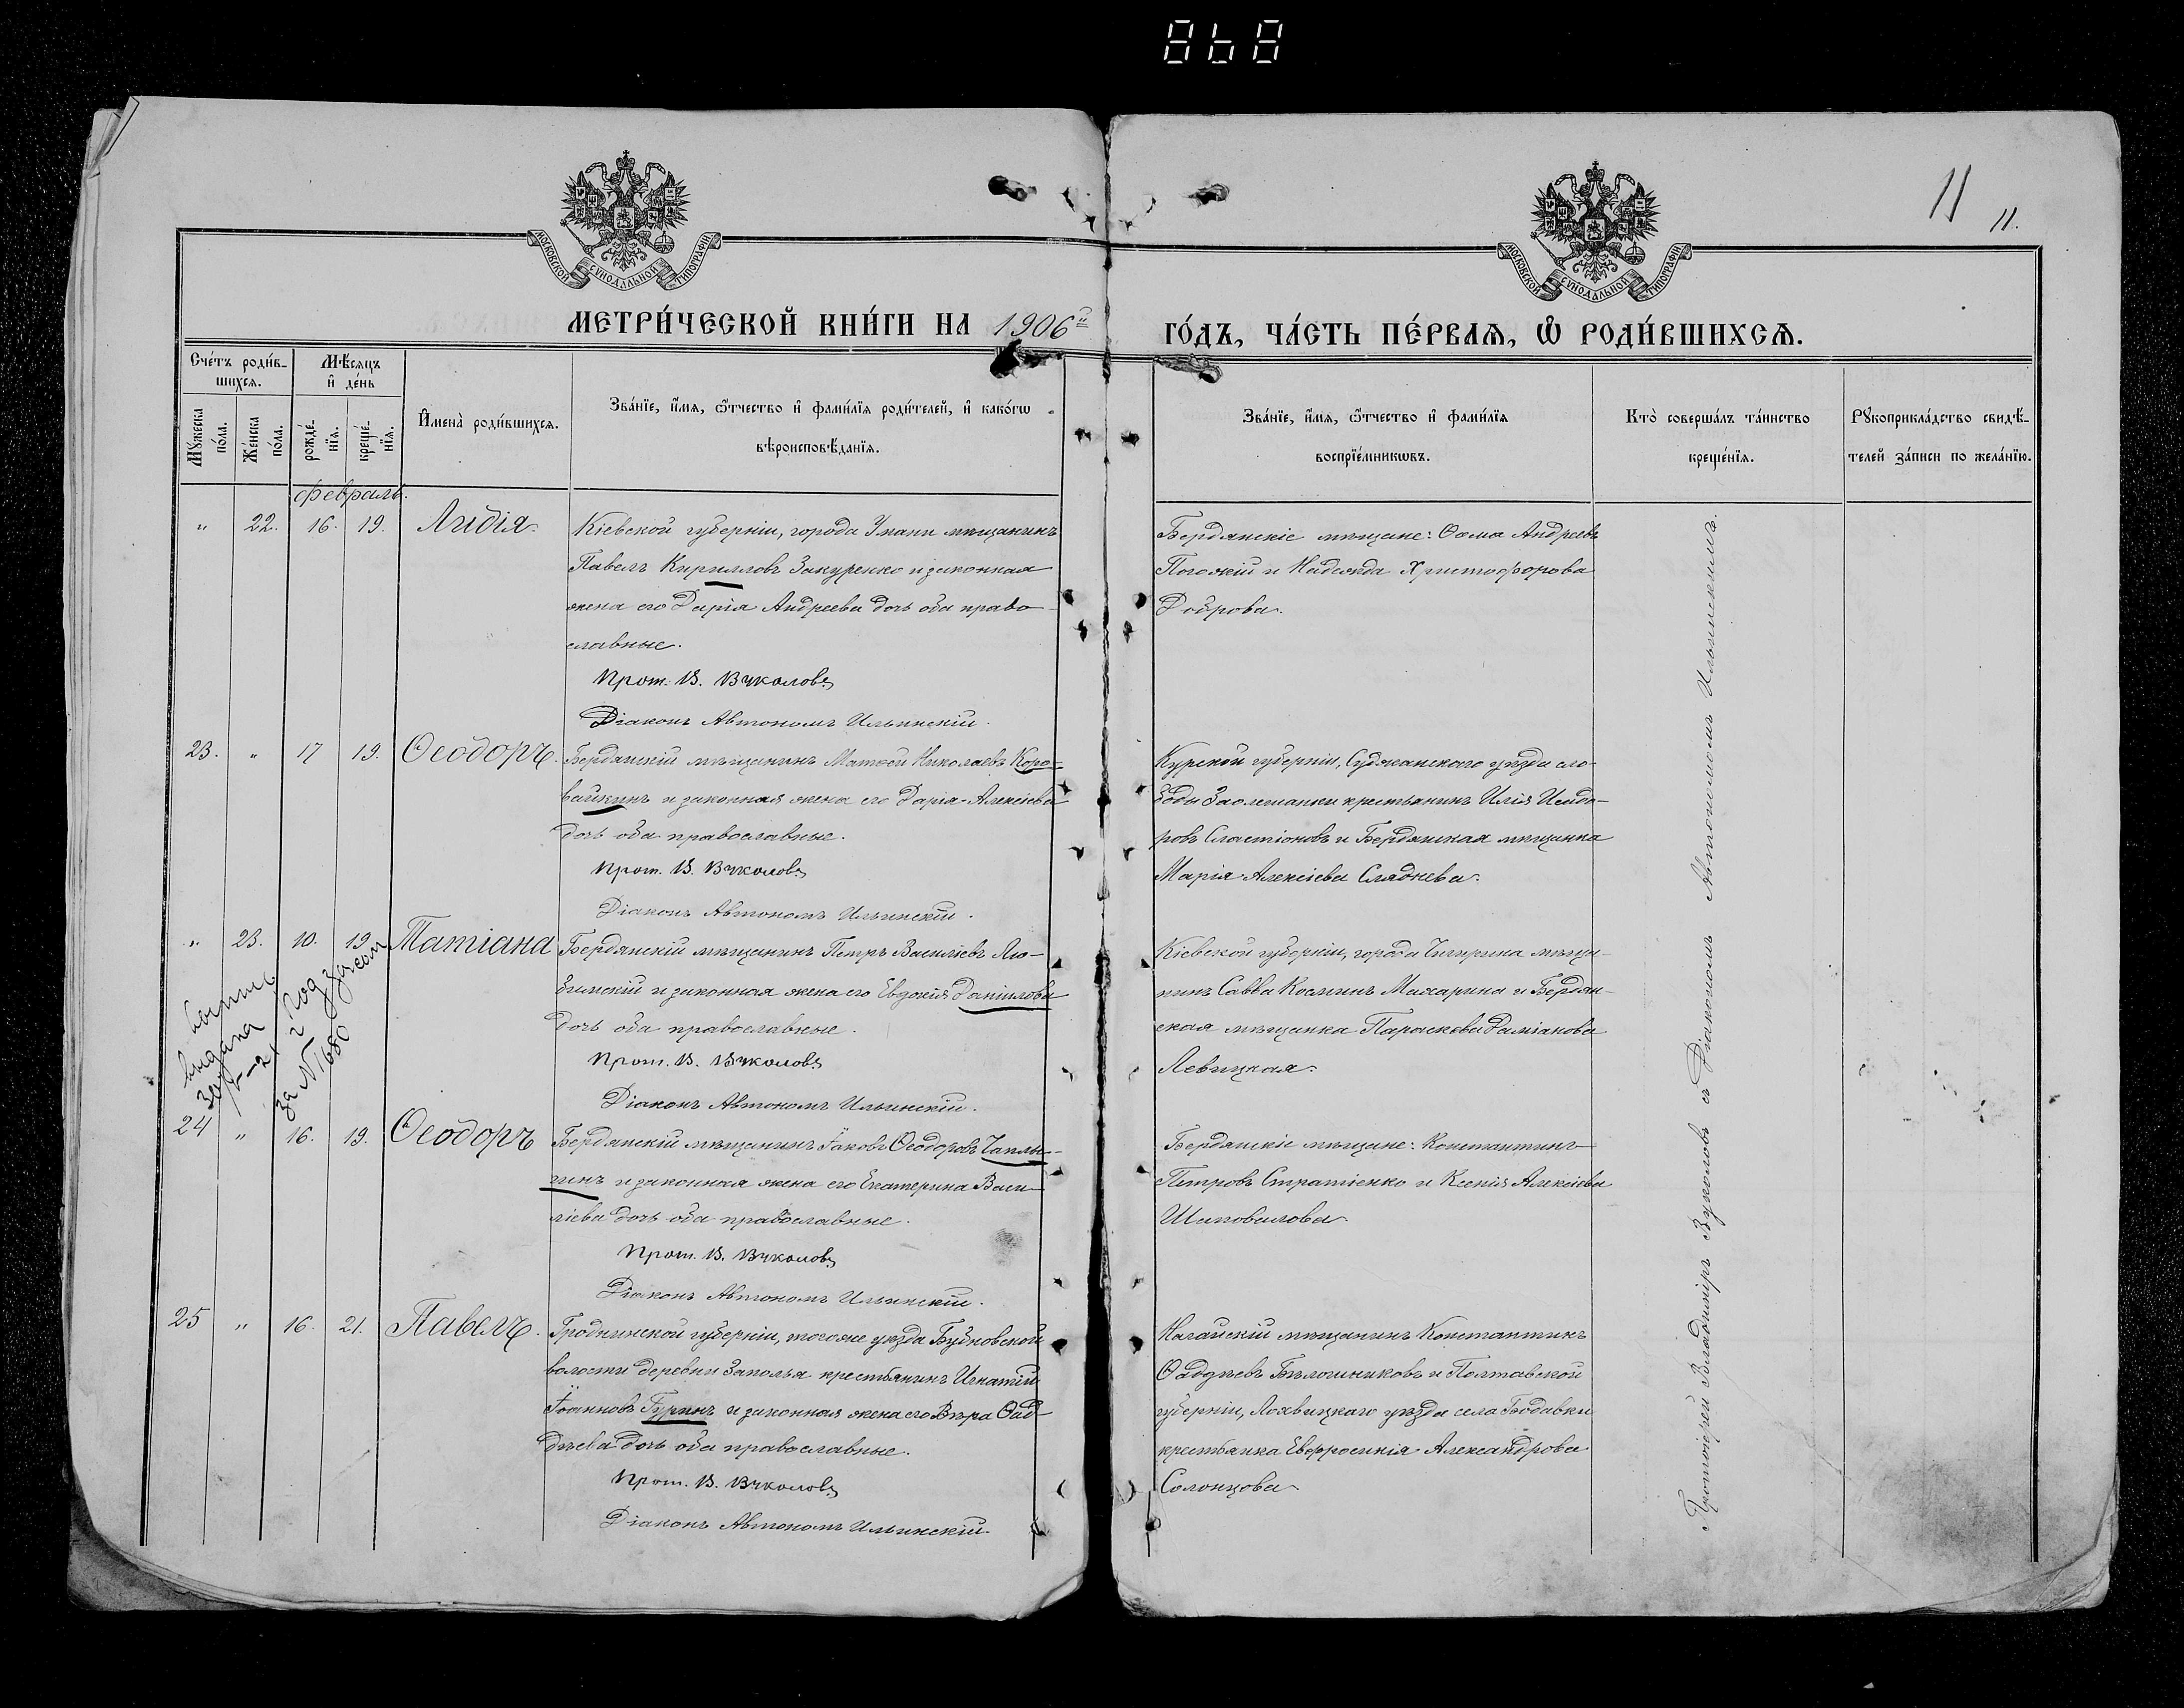 868
11
11.
МОСКОВСКОЙ СѴНОДАЛЬНОЙ ТИПОГРАФІИ
МОСКОВСКОЙ СѴНОДАЛЬНОЙ ТИПОГРАФІИ
МЕТРИ́ЧЕСКОЙ КНИ́ГИ НА 1906й
ГО́ДЪ, ЧА́СТЬ ПЕ́РВАѦ, Ѿ РОДИ́ВШИХСѦ.
Сче́тъ роди́в-
шихсѧ.
Мѣ́сѧцъ
и҆ де́нь
Мꙋ́жеска
по́ла.
Же́нска
по́ла.
рожде́-
нїѧ.
креще́-
нїѧ.
И҆мена̀ роди́вшихсѧ.
Зва́нїе, и҆́мѧ, ѻ҆́тчество и҆ фами́лїѧ роди́телей, и҆ како́гѡ
вѣроисповѣ́данїѧ.
Зва́нїе, и҆́мѧ, ѻ҆́тчество и҆ фами́лїѧ
воспрїе́мникѡвъ.
Кто̀ соверша́лъ та́инство
креще́нїѧ.
Рꙋкоприкла́дство свидѣ́-
телей за́писи по жела́нїю.
февраль.
" 22. 16. 19. Лидія.
Кіевской губерніи, города Умани мѣщанинъ
Павелъ Кирилловъ Закуренко и законная
жена его Дарія Андреева дочь оба право-
славные.
Прот. В. Вуколовъ
Діаконъ Автономъ Ильинскій.
Бердянскіе мѣщане: Ѳома Андреевъ
Погожій и Надежда Христофорова
Доброва.
23. " 17 19. Ѳеодоръ.
Бердянскій мѣщанинъ Матѳей Николаевъ Коро-
вайкинъ и законная жена его Дарія Алексіева
дочь оба православные.
Прот. В. Вуколовъ
Діаконъ Автономъ Ильинскій.
Курской губерніи, Суджанскаго уѣзда сло-
боды Заолешанки крестьянинъ Илія Исидо-
ровъ Сластіоновъ и Бердянская мѣщанка
Марія Алексіева Сляднева.
" 23. 10. 19. Татіана
Бердянскій мѣщанинъ Петръ Василіевъ Лю-
бимскій и законная жена его Евдокія Даніилова
дочь оба православные.
Прот. В. Вуколовъ
Діаконъ Автономъ Ильинскій.
Кіевской губерніи, города Чигирина мѣща-
нинъ Савва Косминъ Махарина и Бердян-
ская мѣщанка Параскева Даміанова
Левицкая.
видана
за № 1680
24 " 16. 19. Ѳеодоръ
Бердянскій мѣщанинъ Іаковъ Ѳеодоровъ Чаплы-
гинъ и законная жена его Екатерина Васи-
ліева дочь оба православные.
Прот. В. Вуколовъ
Діаконъ Автономъ Ильинскій.
Бердянскіе мѣщане: Константинъ
Петровъ Стратіенко и Ксенія Алексіева
Шаповалова.
25 " 16. 21. Павелъ.
Гродненской губерніи, тогоже уѣзда Бубновской
волости деревни Заполья крестьянинъ Игнатій
Іоанновъ Гуринъ и законная жена его Вѣра Ѳад-
дѣева дочь оба православные.
Прот. В. Вуколовъ
Діаконъ Автономъ Ильинскій.
Ногайскій мѣщанинъ Константинъ
Ѳаддѣевъ Бѣлошниковъ и Полтавской
губерніи, Лохвицкаго уѣзда села Бодавки
крестьянка Евфросинія Александрова
Солонцова.
Протоіерей Владиміръ Вуколовъ съ Діакономъ Автономомъ Ильинскимъ.